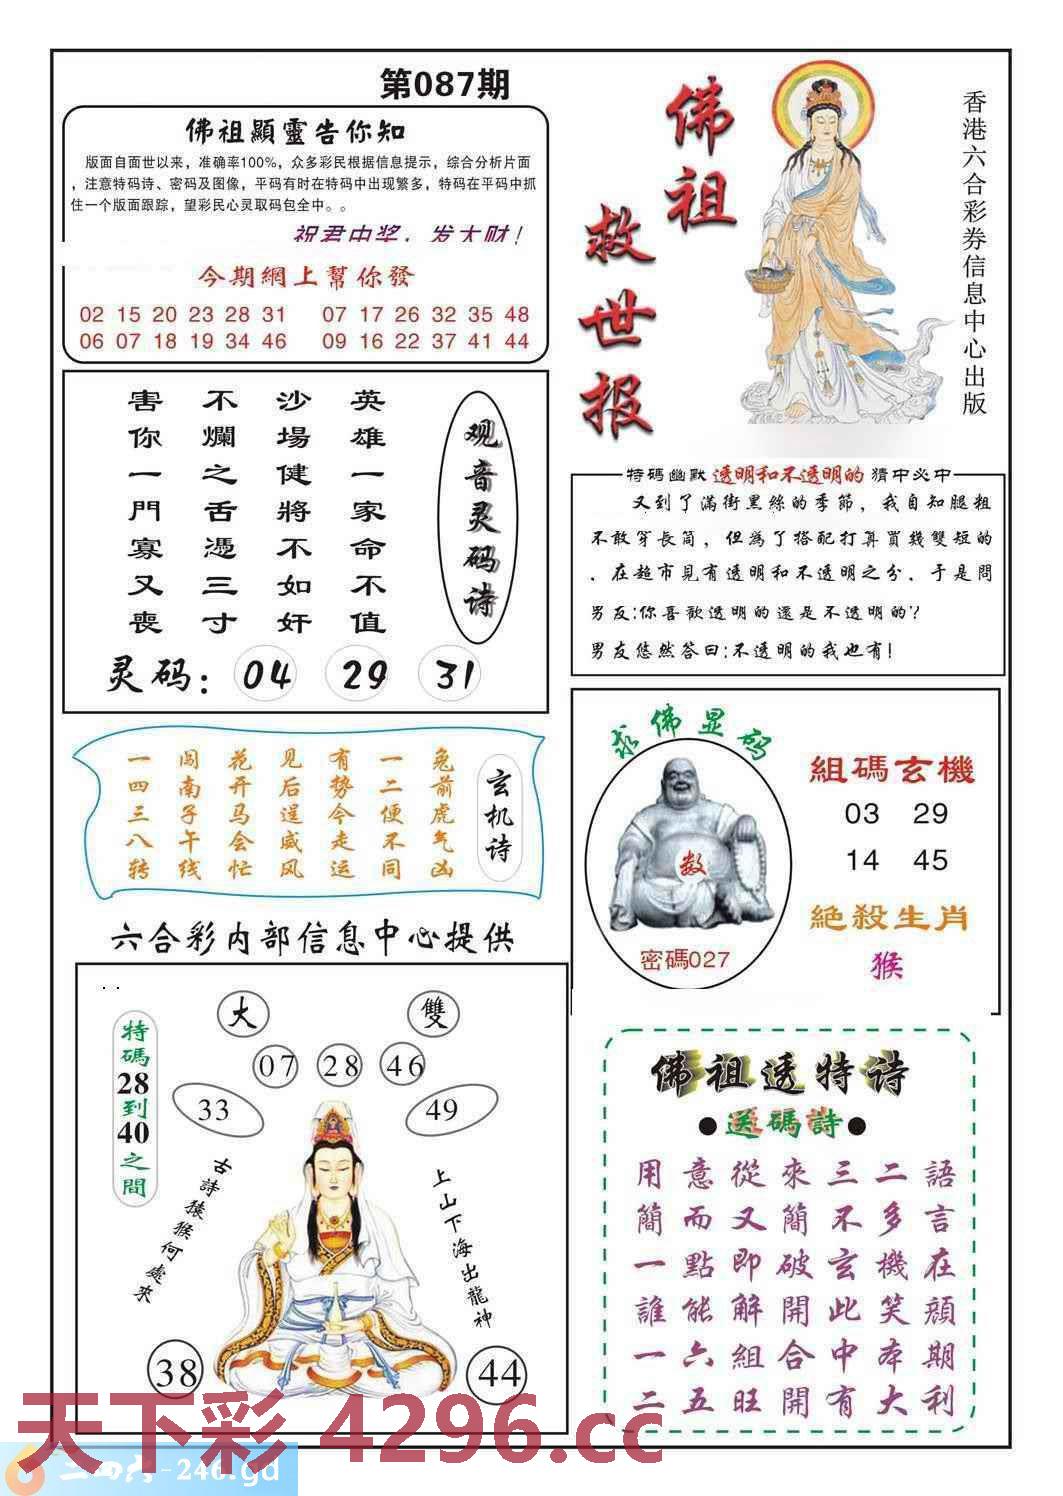 第087期
佛祖顯靈告你知
版面自面世以来，准确率100%，众多彩民根据信息提示，综合分析片面
，注意特码诗、密码及图像，平码有时在特码中出现繁多，特码在平码中抓
住一个版面跟踪，望彩民心灵取码包全中。。
祝君中奖，发大财！
今期網上幫你發
02 15 20 23 28 31 07 17 26 32 35 48
06 07 18 19 34 46 09 16 22 37 41 44
佛祖
救世报
香港六合彩券信息中心出版
观音灵码诗
英雄一家命不值
沙場健將不如奸
不爛之舌憑三寸
害你一門寡又喪
灵码：04 29 31
特码幽默 透明和不透明的 猜中必中
又到了滿街黑絲的季節，我自知腿粗
不敢穿長筒，但為了搭配打算買幾雙短的
．在超市見有透明和不透明之分．于是問
男友:你喜歡透明的還是不透明的？
男友悠然答曰:不透明的我也有!
玄机诗
兔前虎气凶
一二便不同
有势今走运
见后逞威风
花开马会忙
闯南子午线
一四三八转
求佛显码
数
密碼027
組碼玄機
03 29
14 45
絕殺生肖
猴
六合彩内部信息中心提供
大
雙
07 28 46
33
49
特碼28到40之間
古詩猿猴何處來
上山下海出龍神
38
44
佛祖透特诗
●送碼詩●
用意從來三二語
簡而又簡不多言
一點即破玄機在
誰能解開此笑顔
一六組合中本期
二五旺開有大利
天下彩 4296.cc
二四六-246.gd